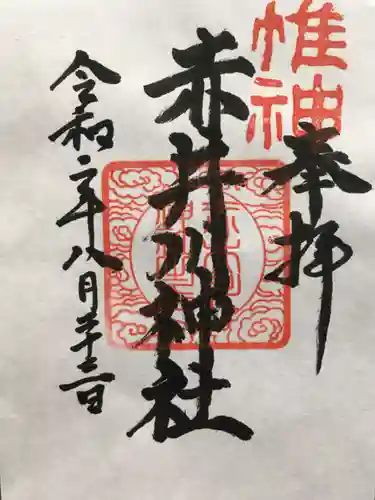 惟神
奉拝
赤井川神社
令和二年八月廿三日